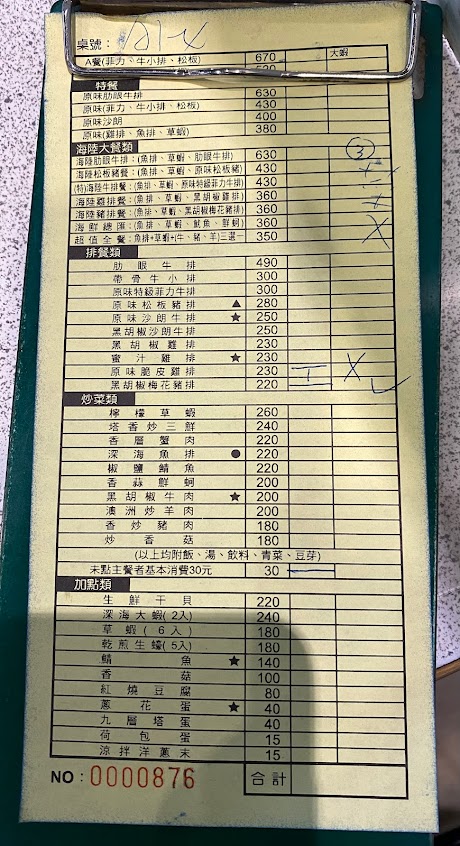 桌號：
A餐(菲力、牛小排、松板) 670 大蝦
特餐
原味肋眼牛排 630
原味(菲力、牛小排、松板) 430
原味沙朗 400
原味(雞排、魚排、草蝦) 380
海陸大餐類
海陸肋眼牛排：(魚排、草蝦、肋眼牛排) 630
海陸松板豬餐：(魚排、草蝦、原味松板豬) 430
(特)海陸牛排餐：(魚排、草蝦、原味特級菲力牛排) 430
海陸雞排餐：(魚排、草蝦、黑胡椒雞排) 360
海陸豬排餐：(魚排、草蝦、黑胡椒梅花豬排) 360
海鮮總匯：(魚排、草蝦、魷魚、鮮蚵) 360
超值全餐：魚排+草蝦+(牛、豬、羊)三選一 350
排餐類
肋眼牛排 490
帶骨牛小排 300
原味特級菲力牛排 300
原味松板豬排 ▲ 280
原味沙朗牛排 ★ 250
黑胡椒沙朗牛排 250
黑胡椒雞排 230
蜜汁雞排 ★ 230
原味脆皮雞排 230
黑胡椒梅花豬排 220
炒菜類
檸檬草蝦 260
塔香炒三鮮 240
香層蟹肉 220
深海魚排 ● 220
椒鹽鯖魚 220
香蒜鮮蚵 200
黑胡椒牛肉 ★ 200
澳洲炒羊肉 200
香炒豬肉 180
炒香菇 180
(以上均附飯、湯、飲料、青菜、豆芽)
未點主餐者基本消費30元 30
加點類
生鮮干貝 220
深海大蝦(2入) 240
草蝦(6入) 180
乾煎生蠔(5入) 180
鯖魚 ★ 140
香菇 100
紅燒豆腐 80
蔥花蛋 ★ 40
九層塔蛋 40
荷包蛋 15
涼拌洋蔥末 15
NO：0000876 合計